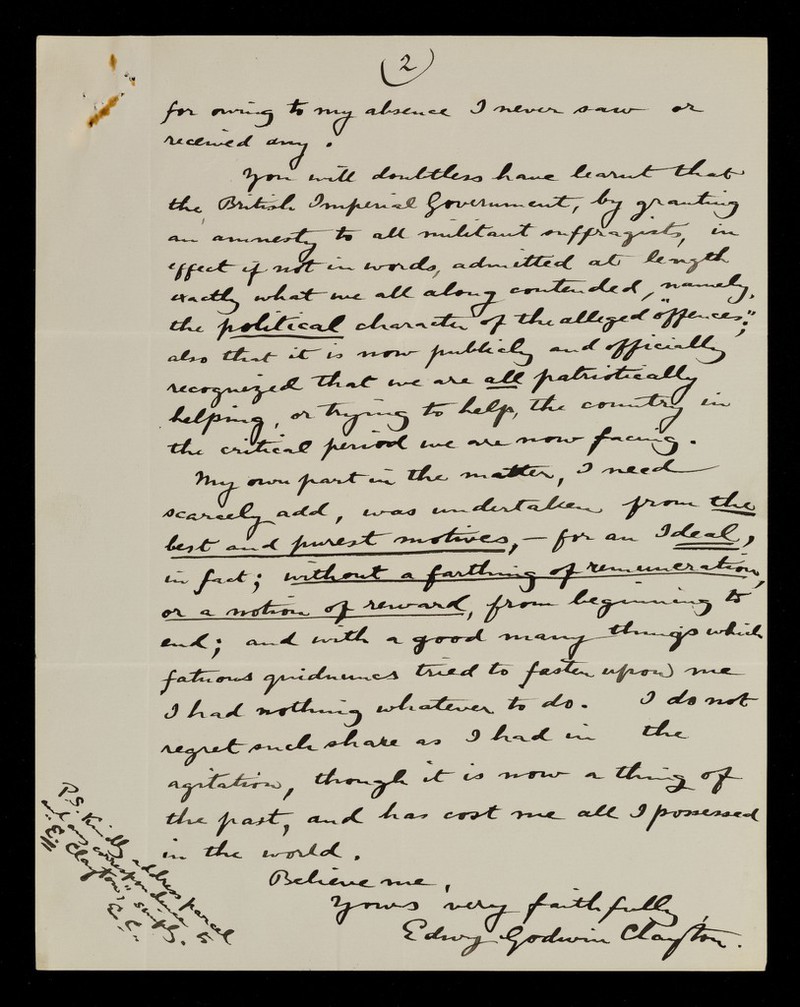 (2)
for owing to my absence I never saw or
received any.
You will doubtless have learnt that
the British Imperial Government, by granting
an amnesty to all militant suffragists, in
effect if not in words, admitted at length
exactly what we all along contended, namely,
the political character of the alleged "offences";
also that it is now publicly and officially
recognized that we are all patriotically
helping, or trying to help, the country in
the critical period we are now facing.
My own part in the matter, I need
scarcely add, was undertaken from the
best and purest motives, — for an Ideal,
in fact; without a farthing of remuneration,
or a notion of reward, from beginning to
end; and with a good many things which
fatuous quidnuncs tried to fasten upon me
I had nothing whatever to do. I do not
regret such share as I had in the
agitation, though it is now a thing of
the past, and has cost me all I possessed
in the world.
Believe me,
Yours very faithfully,
Edwy Godwin Clayton.
P.S. Kindly address parcel
and any correspondence to
"E. Clayton," simply.
E. C.